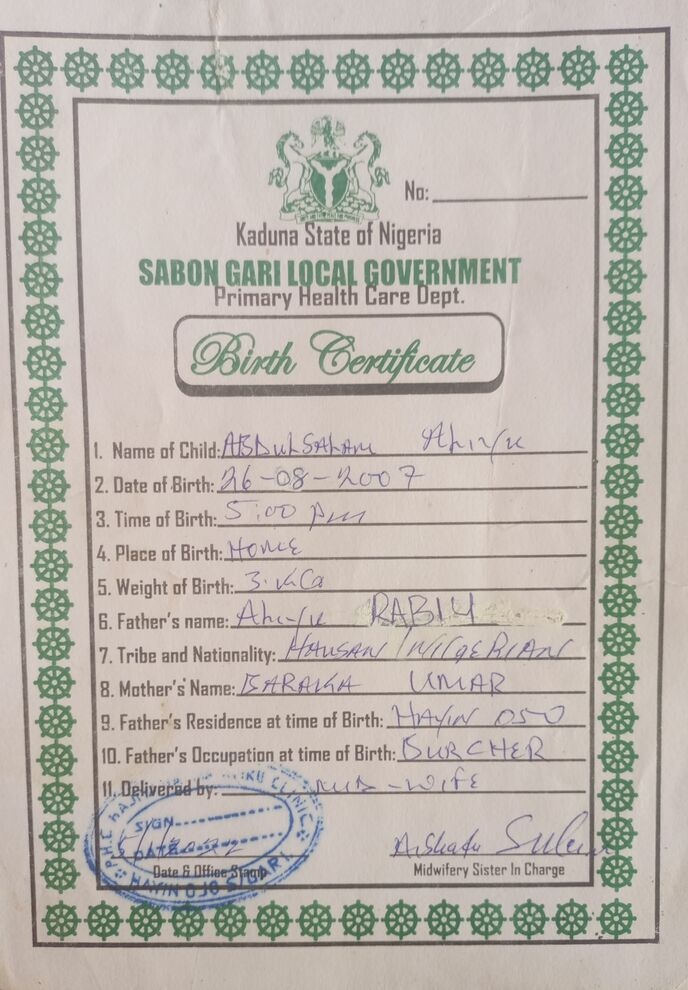 No:
Kaduna State of Nigeria
SABON GARI LOCAL GOVERNMENT
Primary Health Care Dept.
Birth Certificate
1. Name of Child: ABDULSALAM
2. Date of Birth: 26-08-2007
3. Time of Birth: 5:00 pm
4. Place of Birth: HOME
5. Weight of Birth: 3.KG
6. Father's name: RABIU
7. Tribe and Nationality: HAUSAN/NIGERIAN
8. Mother's Name: BARAKA UMAR
9. Father's Residence at time of Birth: HAYIN OJO
10. Father's Occupation at time of Birth: BURCHER
11. Delivered by: MID-WIFE
SIGN
DATE
Aishatu
Date & Office Stamp
Midwifery Sister In Charge
CLINIC
HAYIN OJO S/GARI